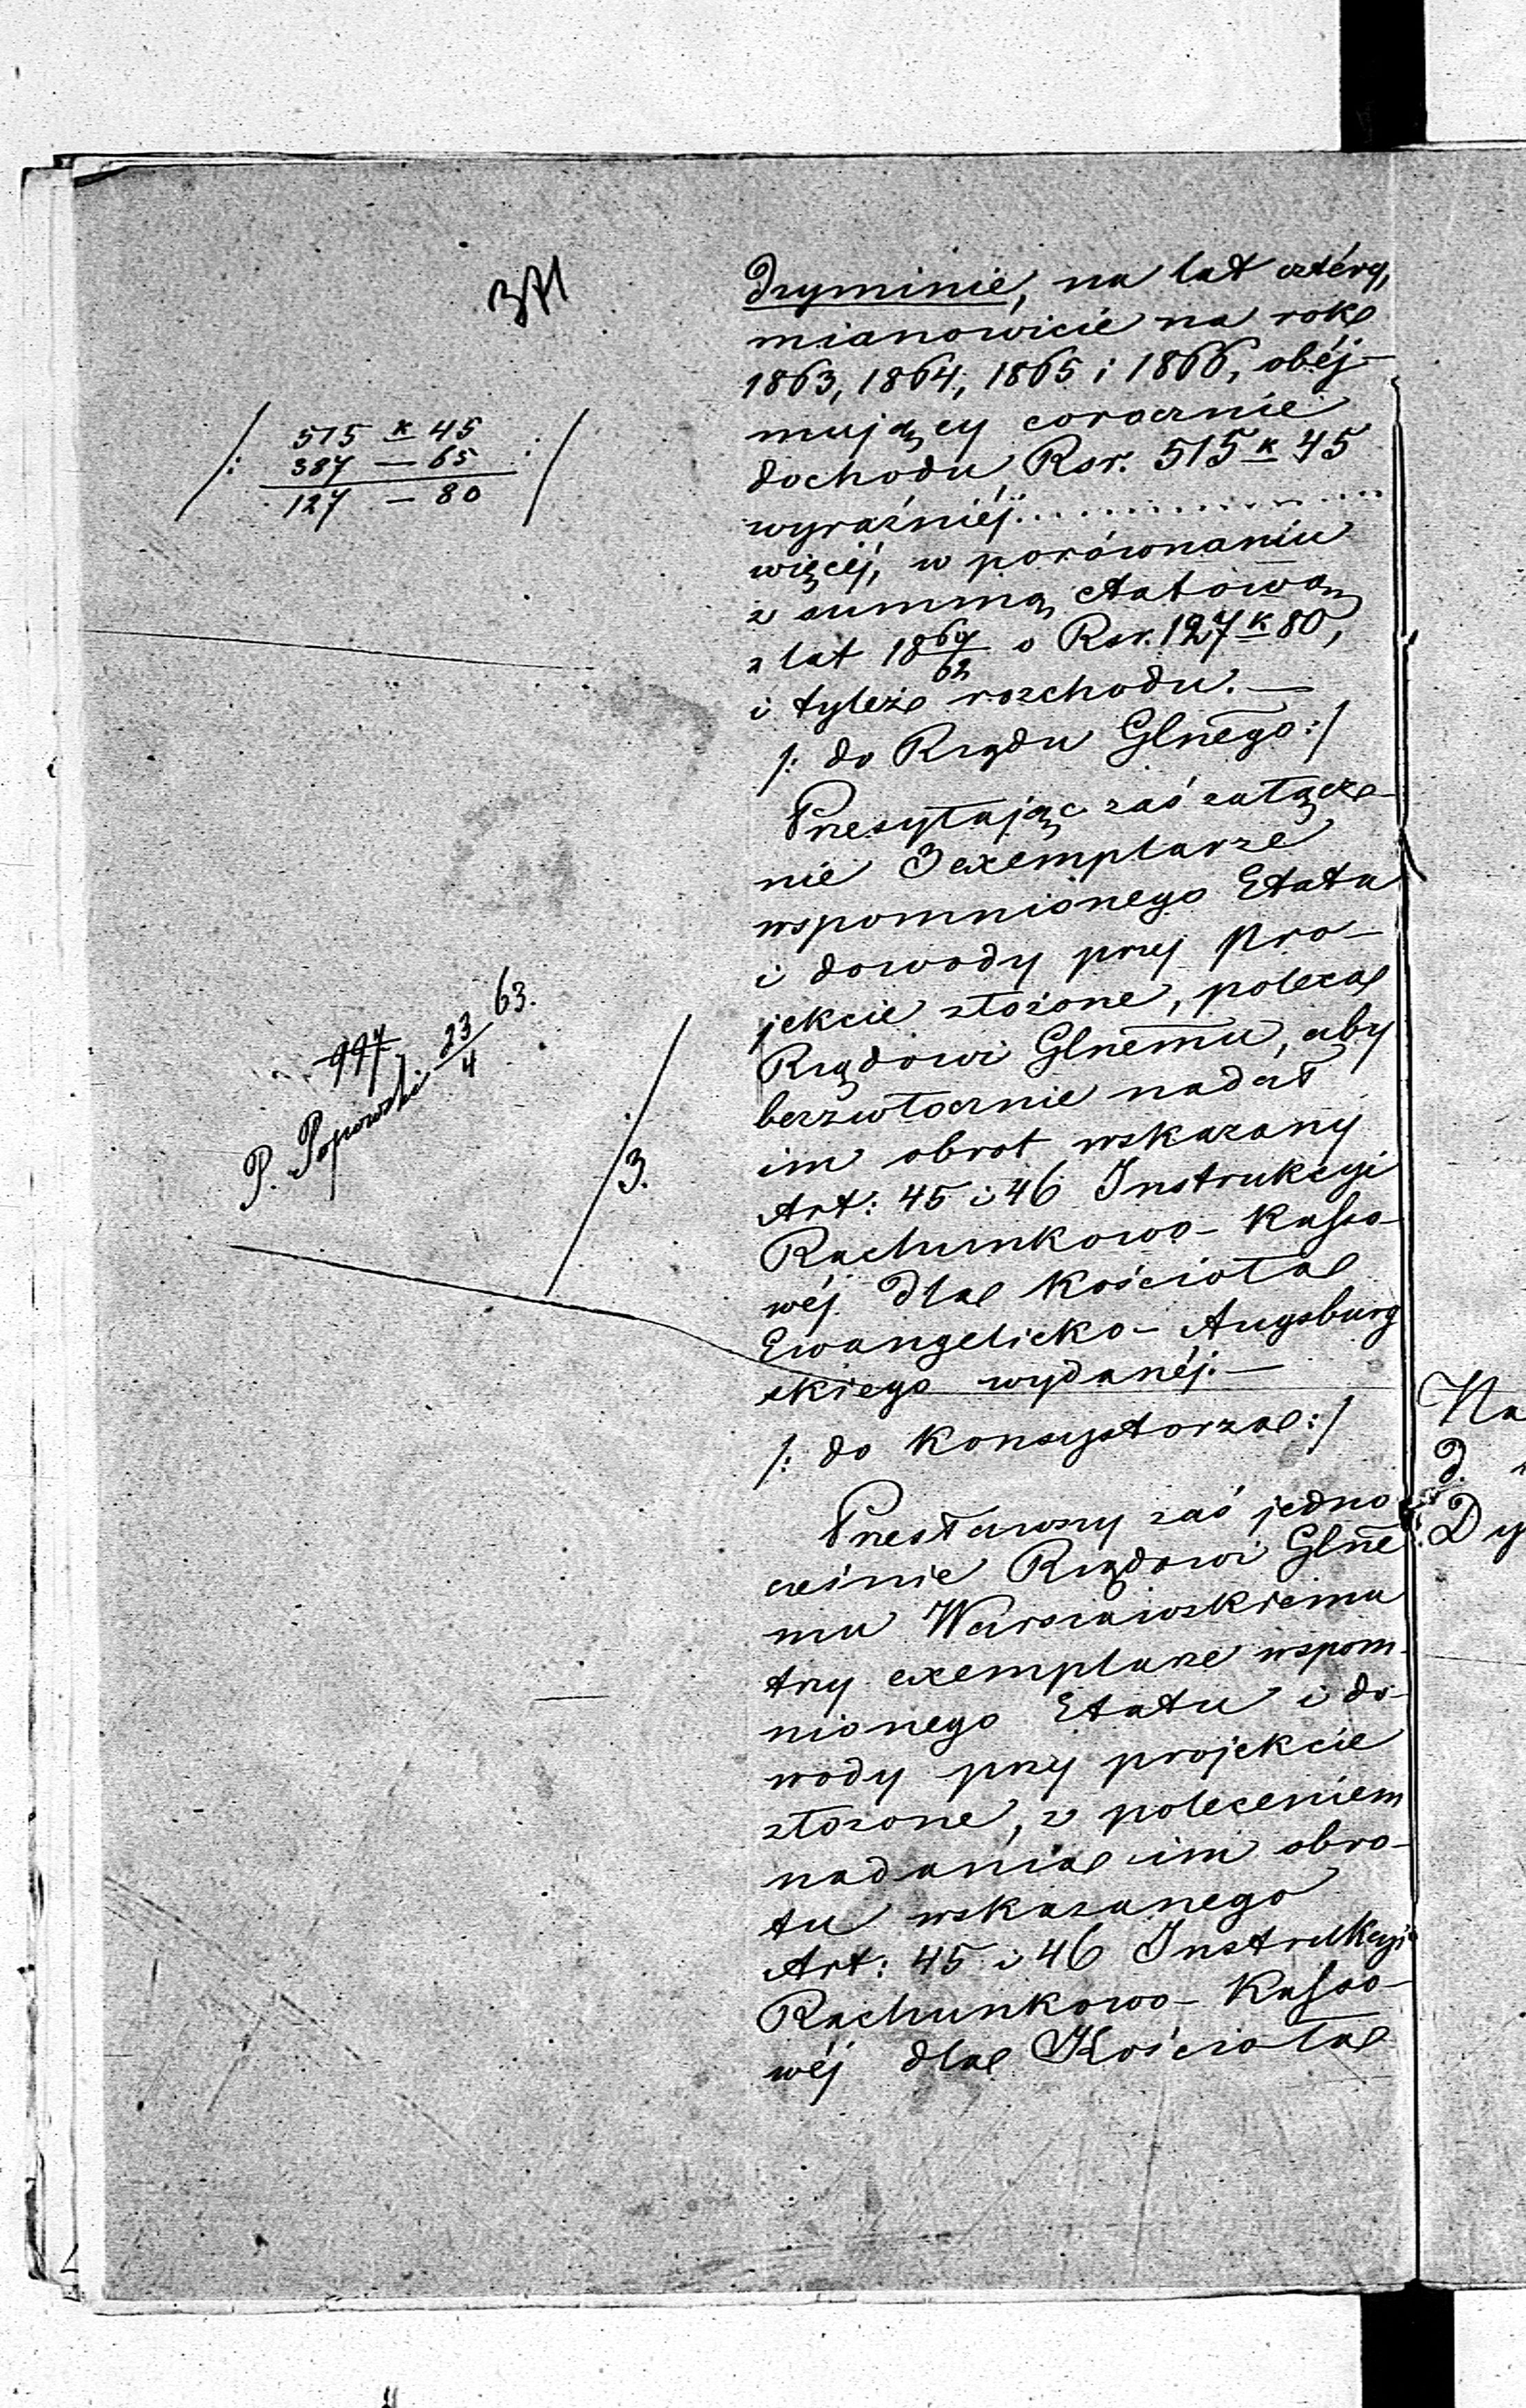 371
/: 515 k 45 :/
387 — 65
127 — 80
P. Popowski 23/4 63.
3.
Dryminie, na lat cztéry,
mianowicie na rok
1863, 1864, 1865 i 1866, obéj-
mujący corocznie
dochodu Rsr. 515 k 45
wyraźniéj . . . . . . . . . . . . . .
więcéj, w porównaniu
z summą etatową
z lat 18 60/62 o Rsr. 127 k 80,
i tyleż rozchodu. —
/: do Rządu Glnego :/
Przesyłając zaś załącze-
nie 3 exemplarze
wspomnionego Etatu
i dowody przy pro-
jekcie złożone, poleca
Rządowi Glnemu, aby
bezzwłocznie nadał
im obrot wskazany
Art: 45 i 46 Instrukcyi
Rachunkowo-Kasso-
wéj dla Kościoła
Ewangelicko-Augsburg
skiego wydanéj. —
/: do Konsystorza :/
Przesławszy zaś jedno
cześnie Rządowi Glne
mu Warszawskiemu
trzy exemplarze wspom-
nionego Etatu i do-
wody przy projekcie
złożone, z poleceniem
nadania im obro-
tu wskazanego
Art: 45 i 46 Instrukcyi
Rachunkowo-Kasso-
wéj dla Kościoła
Na
D.
Dy